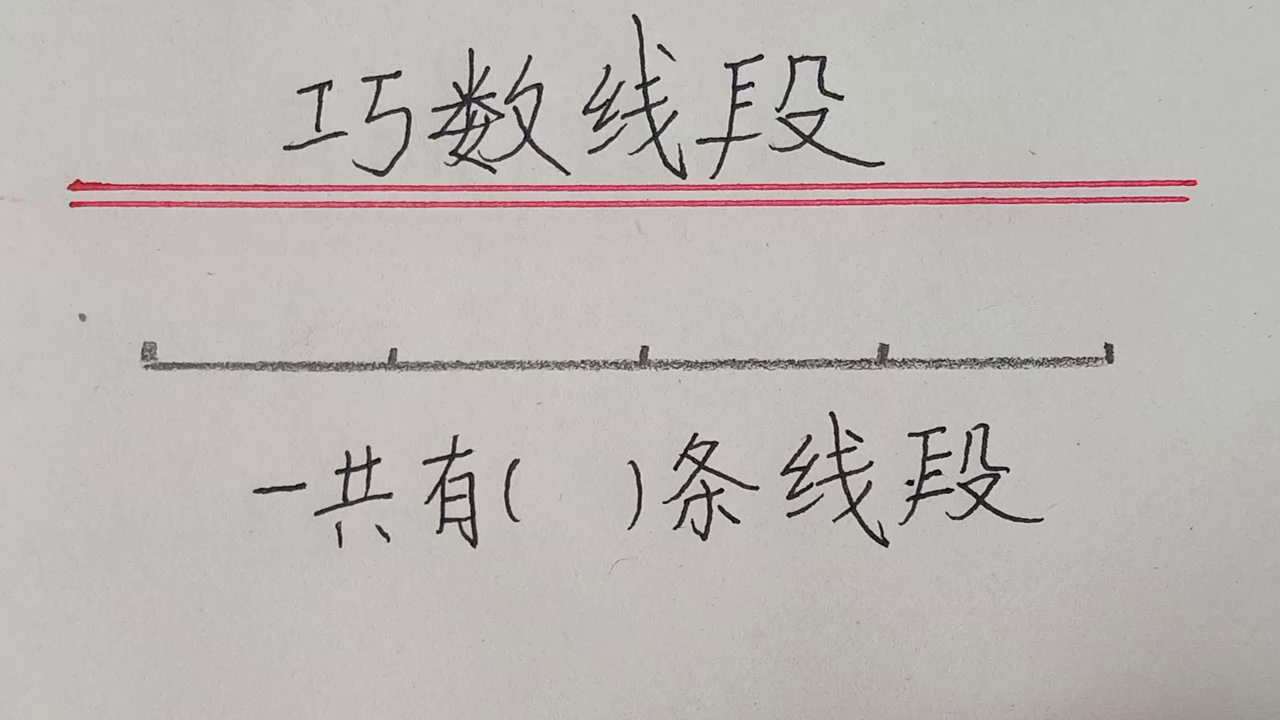 巧数线段
一共有( )条线段